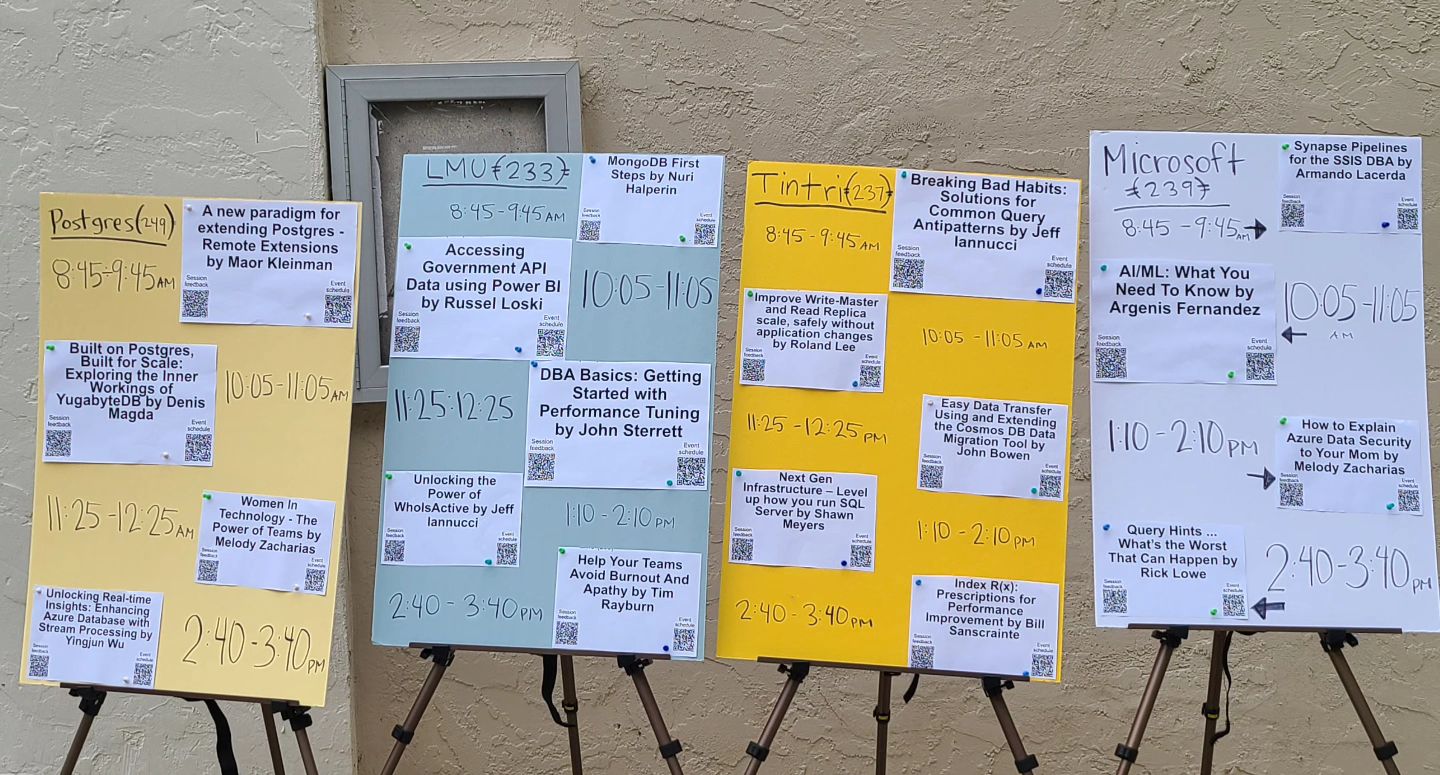 Postgres(249)
8:45-9:45AM
A new paradigm for
extending Postgres -
Remote Extensions
by Maor Kleinman
Session
feedback
Event
schedule
Built on Postgres,
Built for Scale:
Exploring the Inner
Workings of
YugabyteDB by Denis
Magda
Session
feedback
Event
schedule
10:05-11:05AM
11:25-12:25AM
Women In
Technology - The
Power of Teams by
Melody Zacharias
Session
feedback
Event
schedule
Unlocking Real-time
Insights: Enhancing
Azure Database with
Stream Processing by
Yingjun Wu
Session
feedback
Event
schedule
2:40-3:40PM
LMU (233)
8:45-9:45AM
MongoDB First
Steps by Nuri
Halperin
Session
feedback
Event
schedule
Accessing
Government API
Data using Power BI
by Russel Loski
Session
feedback
Event
schedule
10:05-11:05
11:25-12:25
DBA Basics: Getting
Started with
Performance Tuning
by John Sterrett
Session
feedback
Event
schedule
Unlocking the
Power of
WhoIsActive by Jeff
Iannucci
Session
feedback
Event
schedule
1:10-2:10PM
2:40-3:40PM
Help Your Teams
Avoid Burnout And
Apathy by Tim
Rayburn
Session
feedback
Event
schedule
Tintri(237)
8:45-9:45AM
Breaking Bad Habits:
Solutions for
Common Query
Antipatterns by Jeff
Iannucci
Session
feedback
Event
schedule
Improve Write-Master
and Read Replica
scale, safely without
application changes
by Roland Lee
Session
feedback
Event
schedule
10:05-11:05AM
11:25-12:25PM
Easy Data Transfer
Using and Extending
the Cosmos DB Data
Migration Tool by
John Bowen
Session
feedback
Event
schedule
Next Gen
Infrastructure – Level
up how you run SQL
Server by Shawn
Meyers
Session
feedback
Event
schedule
1:10-2:10PM
2:40-3:40PM
Index R(x):
Prescriptions for
Performance
Improvement by Bill
Sanscrainte
Session
feedback
Event
schedule
Microsoft
(239)
8:45-9:45AM
Synapse Pipelines
for the SSIS DBA by
Armando Lacerda
Session
feedback
Event
schedule
AI/ML: What You
Need To Know by
Argenis Fernandez
Session
feedback
Event
schedule
10:05-11:05
AM
1:10-2:10PM
How to Explain
Azure Data Security
to Your Mom by
Melody Zacharias
Session
feedback
Event
schedule
Query Hints ...
What's the Worst
That Can Happen by
Rick Lowe
Session
feedback
Event
schedule
2:40-3:40PM